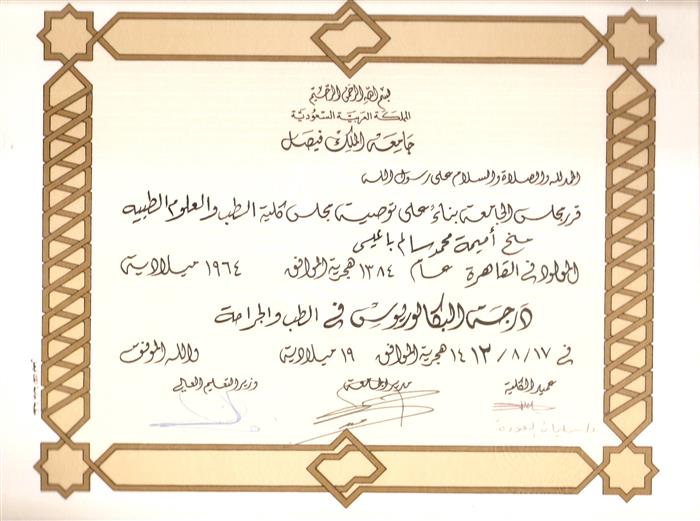 بسم الله الرحمن الرحيم
المملكة العربية السعودية
جامعة الملك فيصل
الحمد لله والصلاة والسلام على رسول الله
قرر مجلس الجامعة بناءً على توصية مجلس كلية الطب والعلوم الطبية
منح أميمة محمد سالم باعيسى
المولود في القاهرة عام ١٣٨٤ هجرية الموافق ١٩٦٤ ميلادية
درجة البكالوريوس في الطب والجراحة
في ١٧ / ٨ / ١٤١٣ هجرية الموافق ١٩ ميلادية والله الموفق
عميد الكلية مدير الجامعة وزير التعليم العالي